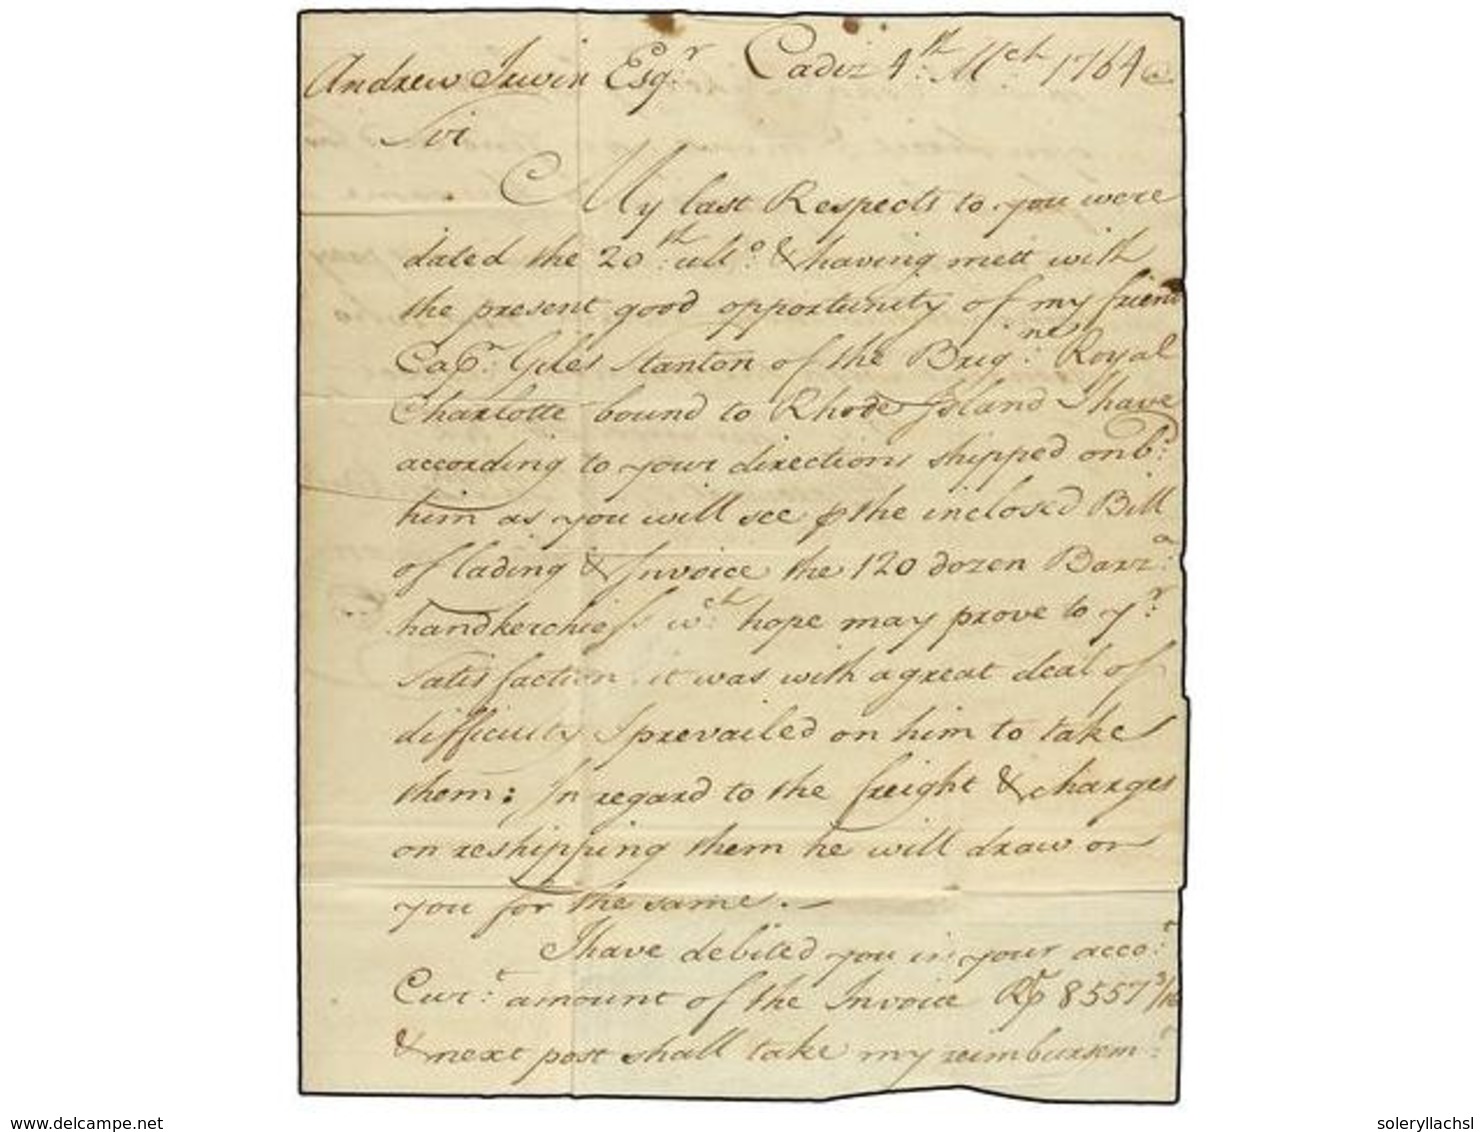 Andrew Irwin Esqr. Cadiz 4th. Mch 1764
Sir
My last Respects to you were
dated the 20th. ulto. & having mett with
the present good opportunity of my friend
Capn. Giles Stanton of the Brigne. Royal
Charlotte bound to Rhode Island I have
according to your directions shipped on bd.
him as you will see ꝑ the inclosed Bill
of lading & Invoice the 120 dozen Barza.
handkerchiefs wch. hope may prove to yr.
satisfaction it was with a great deal of
difficulty I prevailed on him to take
them: In regard to the freight & charges
on reshipping them he will draw on
you for the same. —
I have debited you in your accot.
Curt. amount of the Invoice 8557 3/16
& next post shall take my reimbursemt.
www.delcampe.net
soleryllachsl